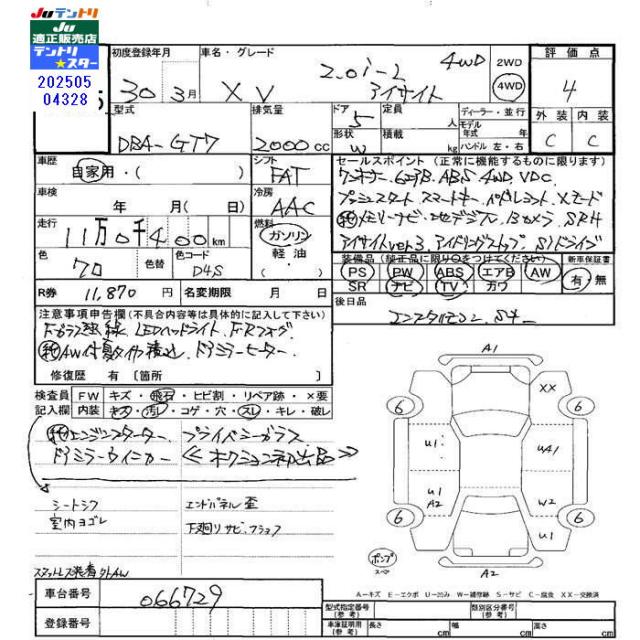 JUテントリ
JU
適正販売店
テントリ
★スター
202505
04328
初度登録年月
30 3月
車名・グレード
XV 2.0i-L 4WD
アイサイト
2WD
4WD
評価点
4
外装 内装
C C
型式
DBA-GT7
排気量
2000cc
ドア
5
形状
W
定員
人
積載
kg
ディーラー・並行
モデル
年式 年
ハンドル 左・右
車歴
自家用・( )
シフト
FAT
車検
年 月(日)
冷房
AAC
走行
11万0千400km
燃料
ガソリン
軽油
( )
色
クロ
色替
色コード
D4S
R券 11,870円
名変期限 月 日
セールスポイント(正常に機能するものに限り)
ワンオーナー 6エアB. ABS 4WD. VDC.
プッシュスタート スマートキー パドルシフト. Xモード
社メモリーナビ・地デジ Bカメラ. SRH
アイサイトver3. アイドリングストップ. SIドライブ
装備品(純正品に限り○をつけてください)
PS PW ABS エアB AW
SR ナビ TV カワ
新車保証書
有・無
後日品
注意事項申告欄(不具合内容等は具体的に記入して下さい)
Fガラス熱線 LEDヘッドライト. F・Rフォグ.
社AW付夏タイヤ積込. ドアミラーヒーター.
修復歴 有〔箇所 〕
検査員
記入欄
FW キズ・飛石・ヒビ割・リペア跡・×要
内装 キズ・汚レ・コゲ・穴・スレ・キレ・破レ
社エンジンスターター. プライバシーガラス
ドアミラーウインカー ≪オークション初出品≫
シートシワ
室内ヨゴレ
エンドパネル歪
下廻りサビ・フショク
スタットレス装着 外AW
車台番号 066729
登録番号
A1
XX
6
6
6
6
U1
UA1
U1
A2
W2
U1
A2
ポンプ
スペア
A-キズ E-エクボ U-凹み W-補修跡 S-サビ C-腐食 XX-交換済
型式指定番号
(参考)
類別区分番号
(参考)
車庫証明用
(参考)
長さ cm
幅 cm
高さ cm